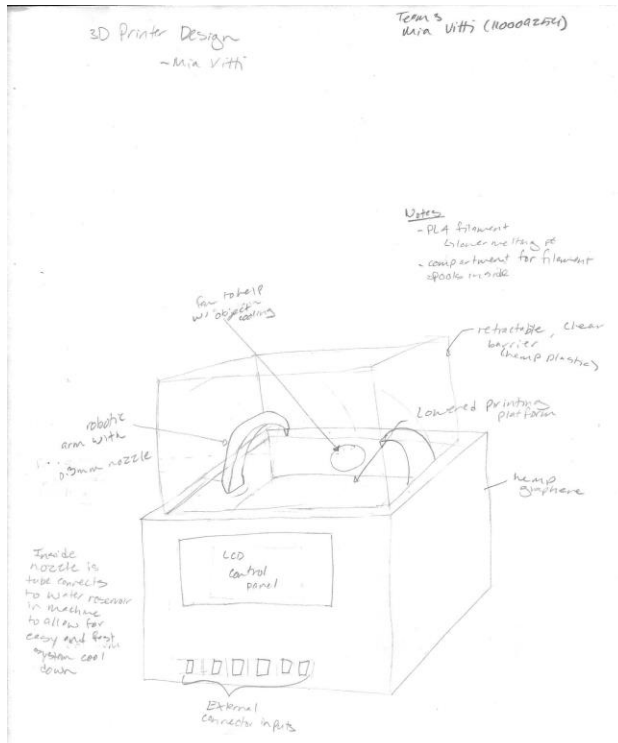 3D Printer Design
~Mia Vitti
Team 3
Mia Vitti
Notes
- PLA filament
↳ lower melting pt
- compartment for filament
spools inside
fan to help
w/ object
cooling
retractable, clear
barrier
(hemp plastic)
Lowered printing
platform
robotic
arm with
0.3mm nozzle
hemp
graphene
LCD
control
panel
Inside
nozzle is
tube connects
to water reservoir
in machine
to allow for
easy and fast
system cool
down
External
connector inputs